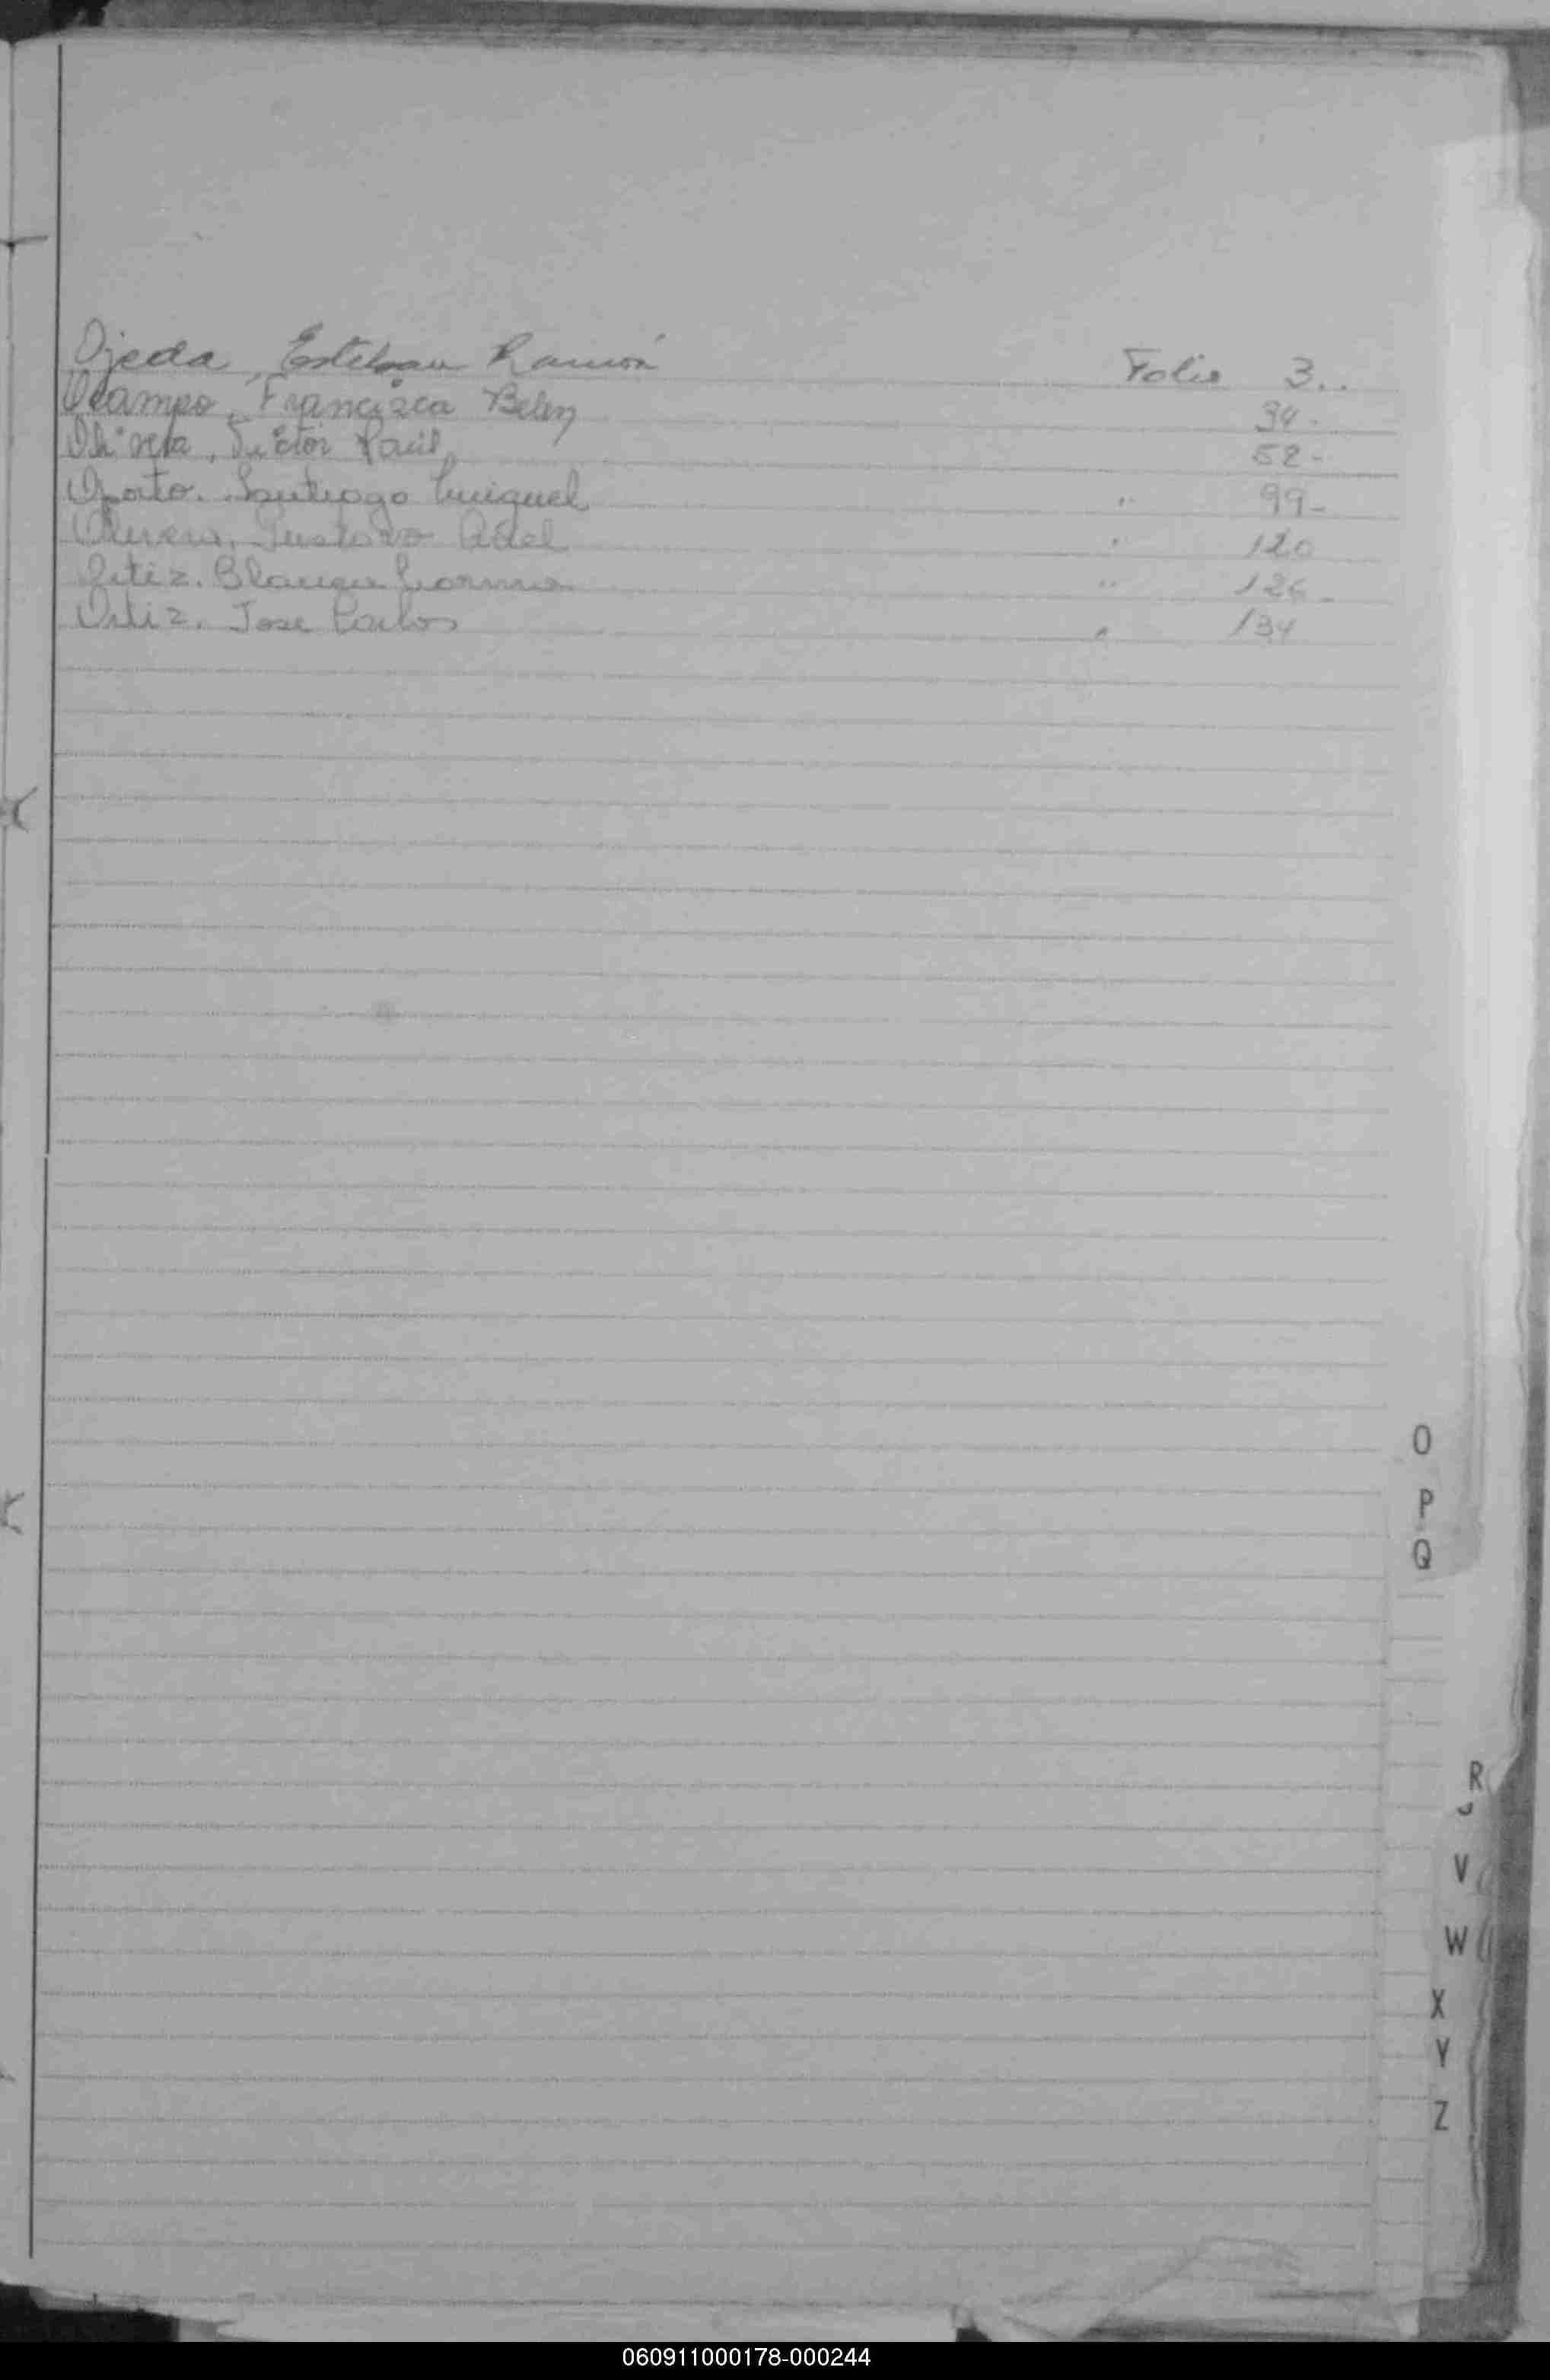 Ojeda, Esteban Ramón Folio 3..
Ocampo, Francisca Belen 34-
Olivera, Victor Raúl 52-
Oporto. Santiago Miguel " 99-
Olivera, Gustavo Adel " 120
Ortiz. Blanca " 126-
Ortiz. Jose Carlos " 134
O
P
Q
R
V
W
X
Y
Z
060911000178-000244